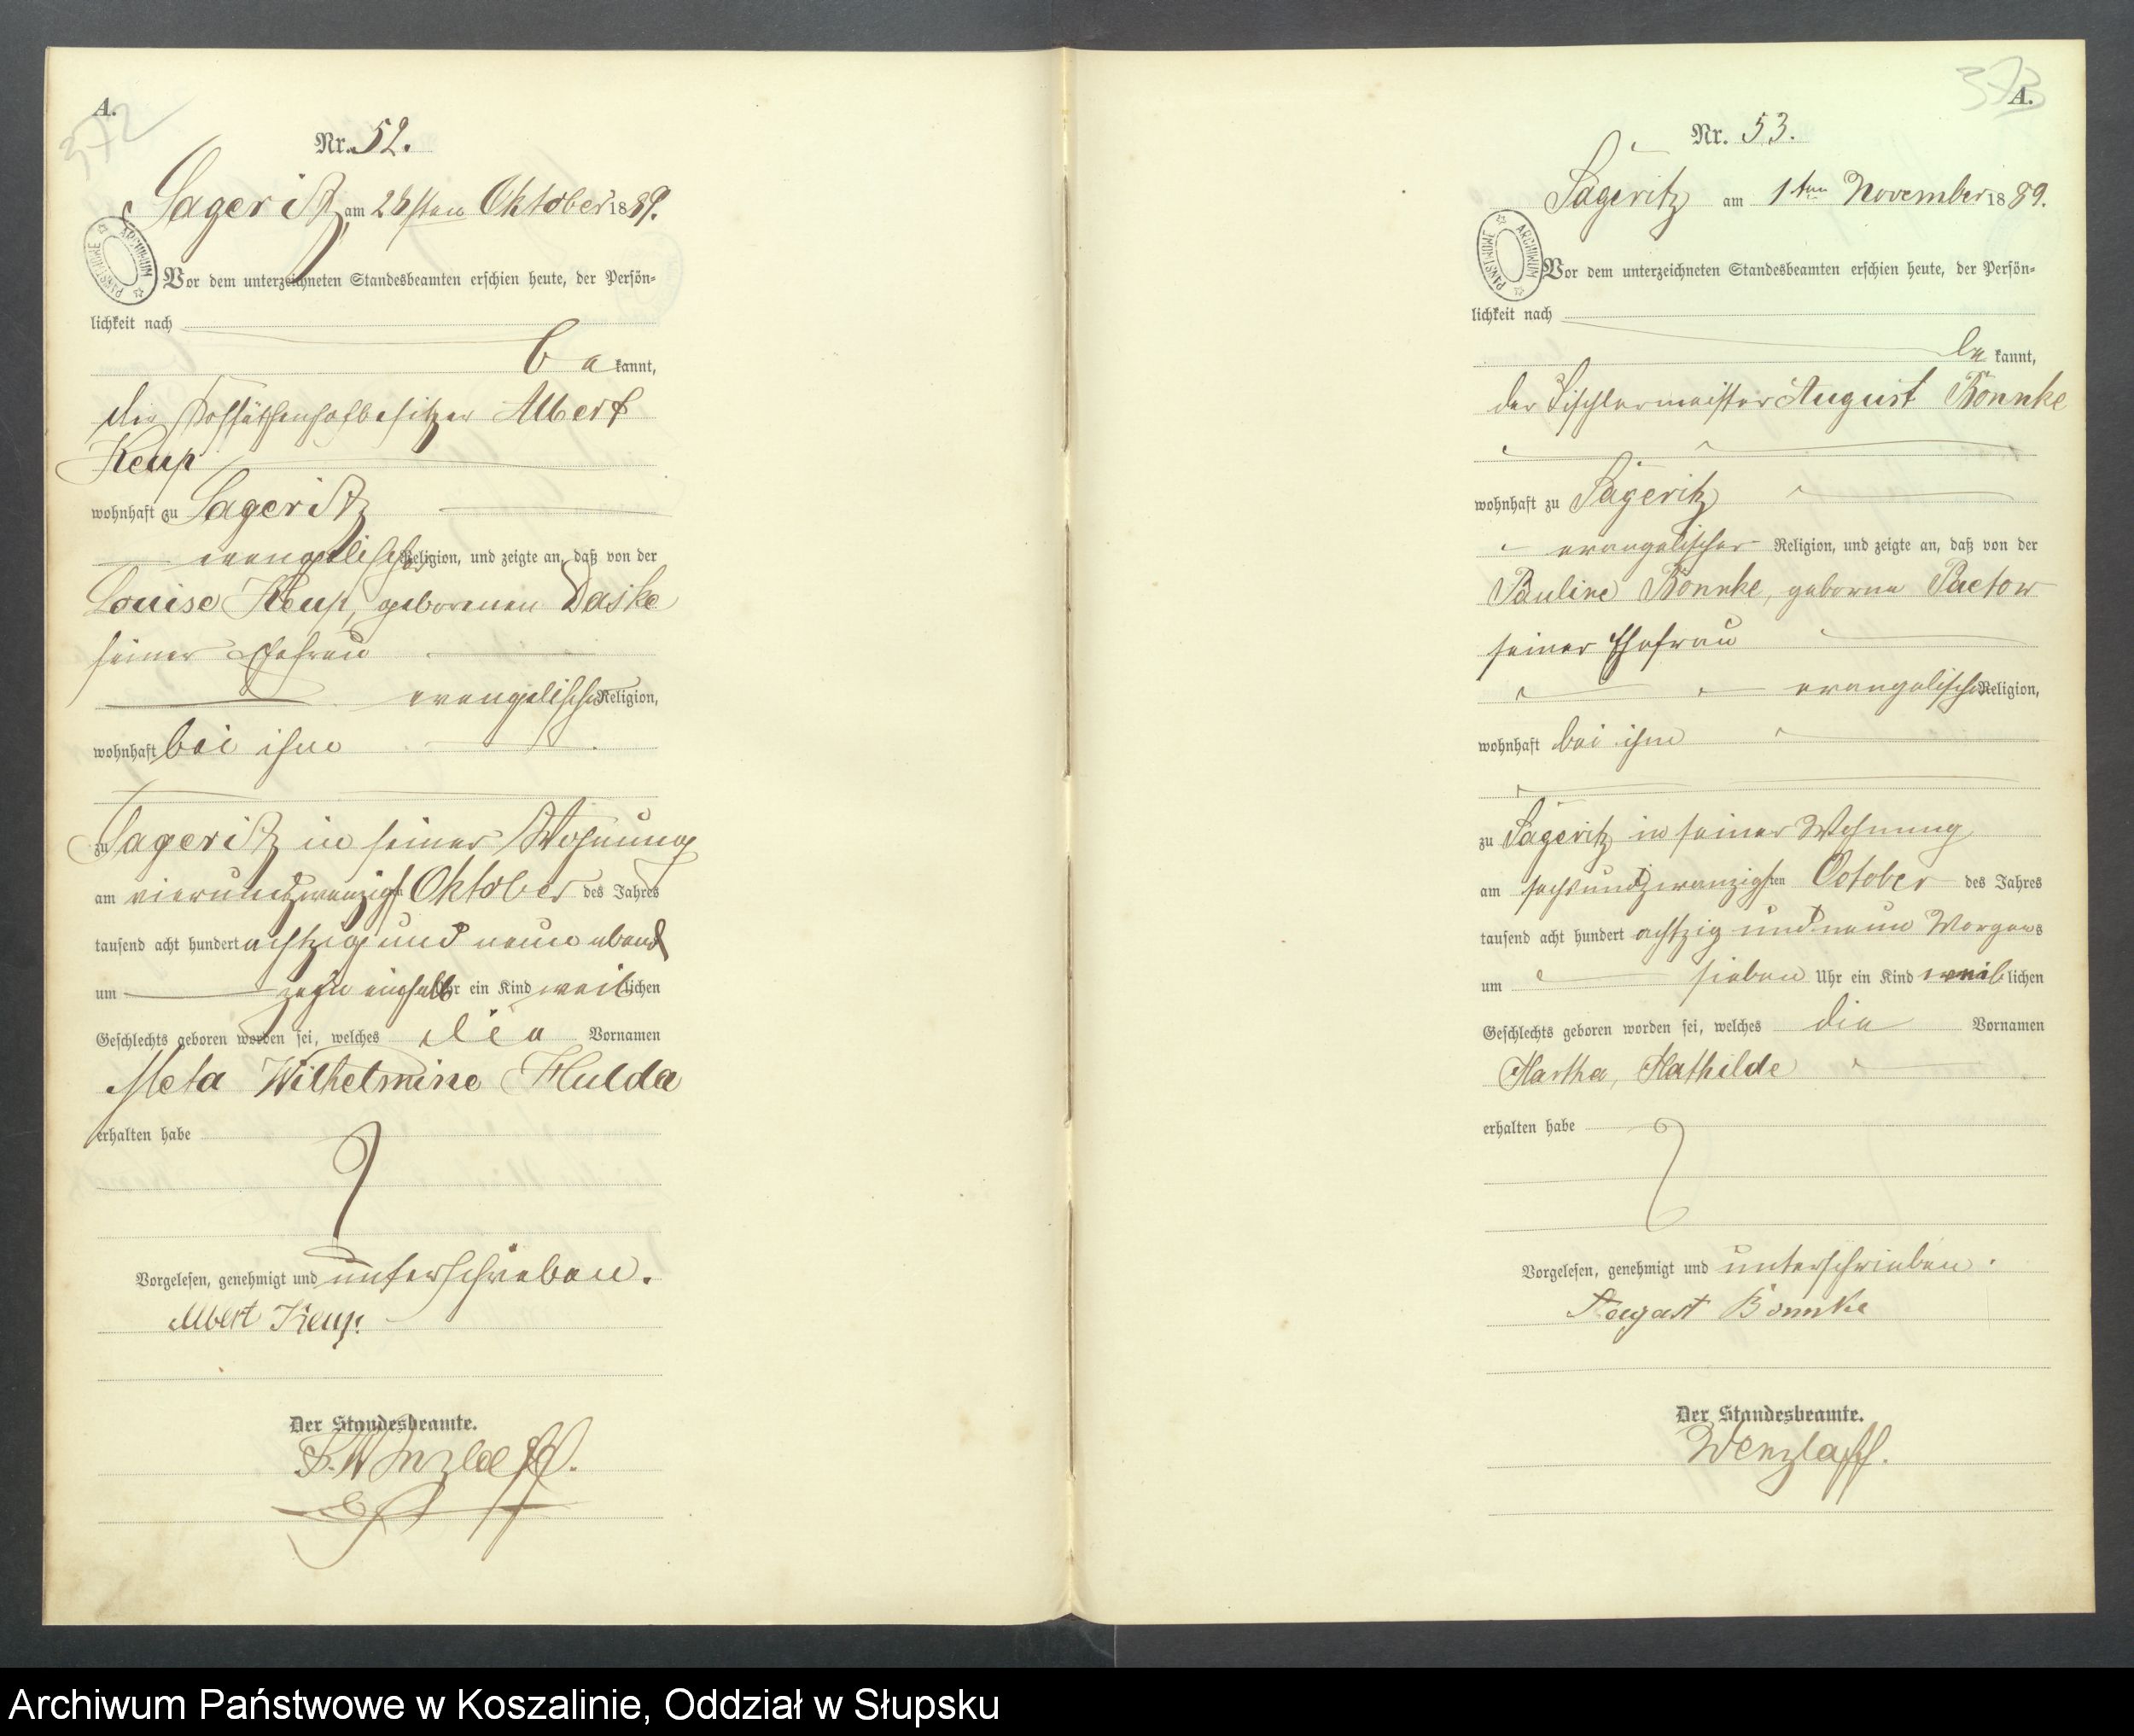 A.
372
Nr. 52.
Sageritz am 26sten Oktober 1889.
ARCHIWUM PAŃSTWOWE
Vor dem unterzeichneten Standesbeamten erschien heute, der Persön-
lichkeit nach
be kannt,
der Kossäthenhofbesitzer Albert
Keup
wohnhaft zu Sageritz
evangelischer Religion, und zeigte an, daß von der
Louise Keup, geborenen Daske
seiner Ehefrau
evangelischer Religion,
wohnhaft bei ihm
zu Sageritz in seiner Wohnung
am vierundzwanzigsten Oktober des Jahres
tausend acht hundert achtzig und neun abend
um zehn einhalb Uhr ein Kind weiblichen
Geschlechts geboren worden sei, welches die Vornamen
Meta Wilhelmine Hulda
erhalten habe
Vorgelesen, genehmigt und unterschrieben.
Albert Keup.
Der Standesbeamte.
Wenzlaff.
373
A.
Nr. 53.
Sageritz am 1ten November 1889.
ARCHIWUM PAŃSTWOWE
Vor dem unterzeichneten Standesbeamten erschien heute, der Persön-
lichkeit nach
be kannt,
der Tischlermeister August Bonnke
wohnhaft zu Sageritz
evangelischer Religion, und zeigte an, daß von der
Pauline Bonnke, geborne Paetow
seiner Ehefrau
evangelischer Religion,
wohnhaft bei ihm
zu Sageritz in seiner Wohnung
am sechsundzwanzigsten October des Jahres
tausend acht hundert achtzig und neun Morgens
um sieben Uhr ein Kind weiblichen
Geschlechts geboren worden sei, welches die Vornamen
Martha, Mathilde
erhalten habe
Vorgelesen, genehmigt und unterschrieben.
August Bonnke
Der Standesbeamte.
Wenzlaff.
Archiwum Państwowe w Koszalinie, Oddział w Słupsku